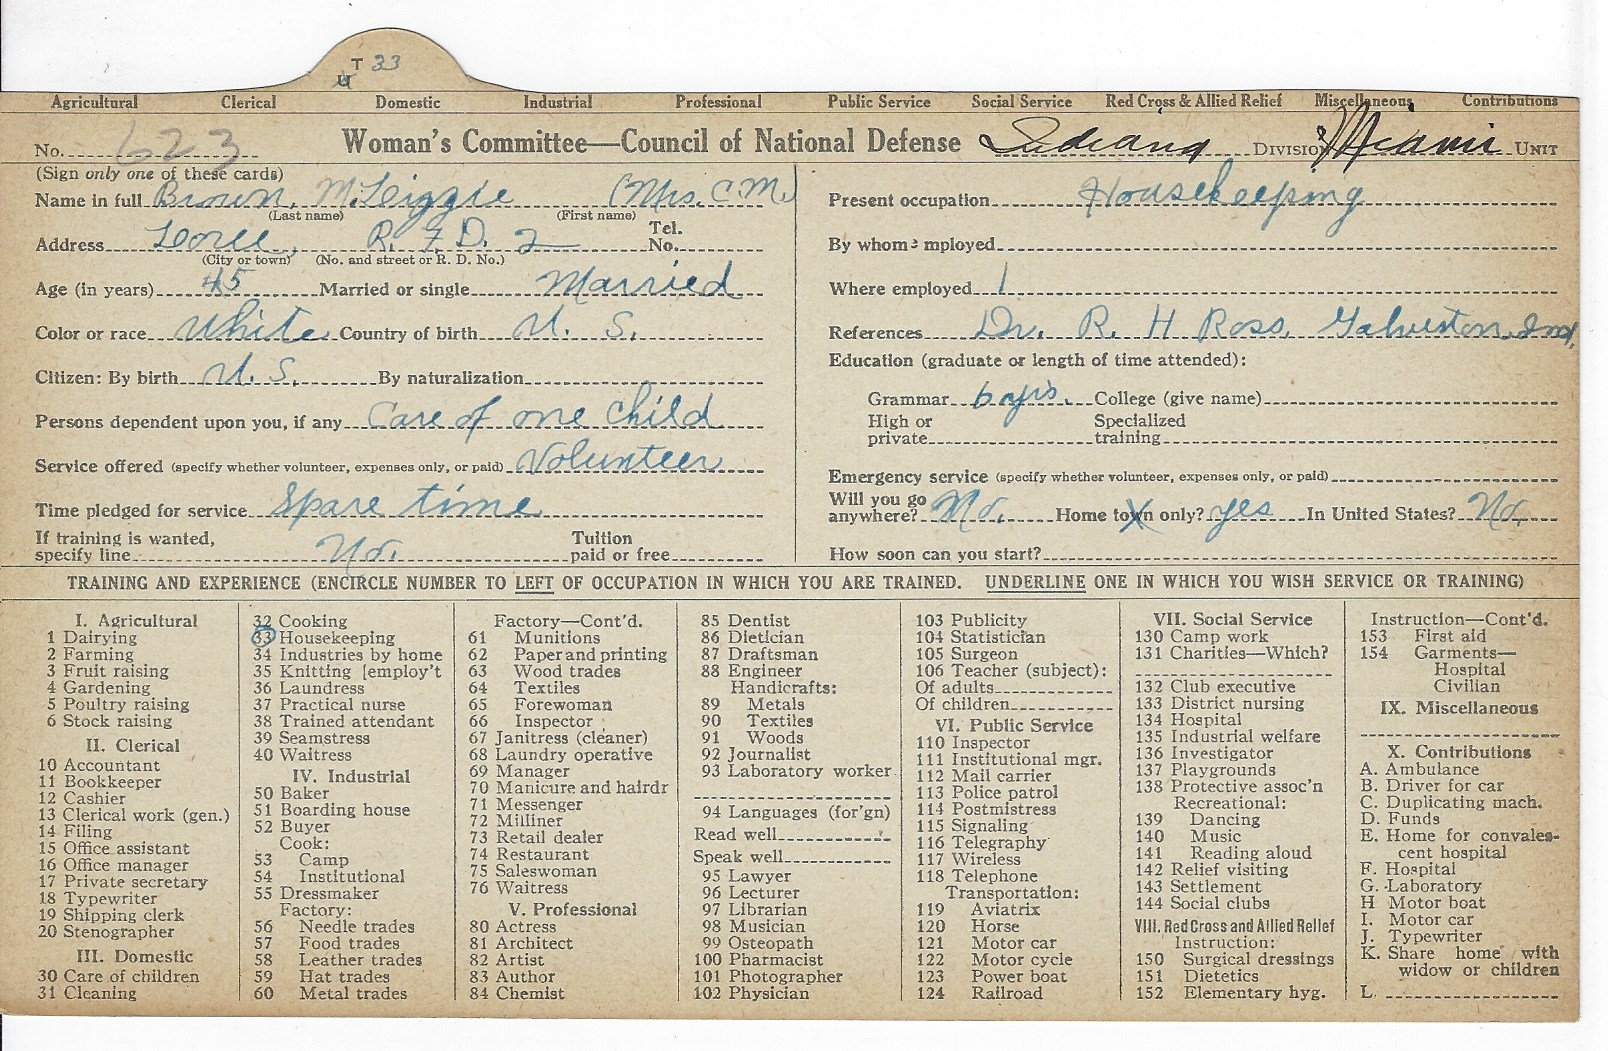 T 33
U
Agricultural Clerical Domestic Industrial Professional Public Service Social Service Red Cross & Allied Relief Miscellaneous Contributions
No. 623 Woman's Committee—Council of National Defense Indiana Division Miami Unit
(Sign only one of these cards)
Name in full Brown, M. Lizzie (Mrs. C. M.)
(Last name) (First name)
Address Loree, R. F. D. 2 Tel. No.
(City or town) (No. and street or R. D. No.)
Age (in years) 45 Married or single Married
Color or race White Country of birth U. S.
Citizen: By birth U. S. By naturalization
Persons dependent upon you, if any Care of one child
Service offered (specify whether volunteer, expenses only, or paid) Volunteer
Time pledged for service Spare time
If training is wanted, specify line No. Tuition paid or free
Present occupation Housekeeping
By whom employed
Where employed
References Dr. R. H Ross, Galveston, Ind.
Education (graduate or length of time attended):
Grammar 6 yrs. College (give name)
High or private Specialized training
Emergency service (specify whether volunteer, expenses only, or paid)
Will you go anywhere? No. Home town only? yes In United States? No.
How soon can you start?
TRAINING AND EXPERIENCE (ENCIRCLE NUMBER TO LEFT OF OCCUPATION IN WHICH YOU ARE TRAINED. UNDERLINE ONE IN WHICH YOU WISH SERVICE OR TRAINING)
I. Agricultural
1 Dairying
2 Farming
3 Fruit raising
4 Gardening
5 Poultry raising
6 Stock raising
II. Clerical
10 Accountant
11 Bookkeeper
12 Cashier
13 Clerical work (gen.)
14 Filing
15 Office assistant
16 Office manager
17 Private secretary
18 Typewriter
19 Shipping clerk
20 Stenographer
III. Domestic
30 Care of children
31 Cleaning
32 Cooking
33 Housekeeping
34 Industries by home
35 Knitting [employ't
36 Laundress
37 Practical nurse
38 Trained attendant
39 Seamstress
40 Waitress
IV. Industrial
50 Baker
51 Boarding house
52 Buyer
Cook:
53 Camp
54 Institutional
55 Dressmaker
Factory:
56 Needle trades
57 Food trades
58 Leather trades
59 Hat trades
60 Metal trades
Factory—Cont'd.
61 Munitions
62 Paper and printing
63 Wood trades
64 Textiles
65 Forewoman
66 Inspector
67 Janitress (cleaner)
68 Laundry operative
69 Manager
70 Manicure and hairdr
71 Messenger
72 Milliner
73 Retail dealer
74 Restaurant
75 Saleswoman
76 Waitress
V. Professional
80 Actress
81 Architect
82 Artist
83 Author
84 Chemist
85 Dentist
86 Dietician
87 Draftsman
88 Engineer
Handicrafts:
89 Metals
90 Textiles
91 Woods
92 Journalist
93 Laboratory worker
94 Languages (for'gn)
Read well
Speak well
95 Lawyer
96 Lecturer
97 Librarian
98 Musician
99 Osteopath
100 Pharmacist
101 Photographer
102 Physician
103 Publicity
104 Statistician
105 Surgeon
106 Teacher (subject):
Of adults
Of children
VI. Public Service
110 Inspector
111 Institutional mgr.
112 Mail carrier
113 Police patrol
114 Postmistress
115 Signaling
116 Telegraphy
117 Wireless
118 Telephone
Transportation:
119 Aviatrix
120 Horse
121 Motor car
122 Motor cycle
123 Power boat
124 Railroad
VII. Social Service
130 Camp work
131 Charities—Which?
132 Club executive
133 District nursing
134 Hospital
135 Industrial welfare
136 Investigator
137 Playgrounds
138 Protective assoc'n
Recreational:
139 Dancing
140 Music
141 Reading aloud
142 Relief visiting
143 Settlement
144 Social clubs
VIII. Red Cross and Allied Relief
Instruction:
150 Surgical dressings
151 Dietetics
152 Elementary hyg.
Instruction—Cont'd.
153 First aid
154 Garments—
Hospital
Civilian
IX. Miscellaneous
X. Contributions
A. Ambulance
B. Driver for car
C. Duplicating mach.
D. Funds
E. Home for convales-
cent hospital
F. Hospital
G. Laboratory
H Motor boat
I. Motor car
J. Typewriter
K. Share home with
widow or children
L.